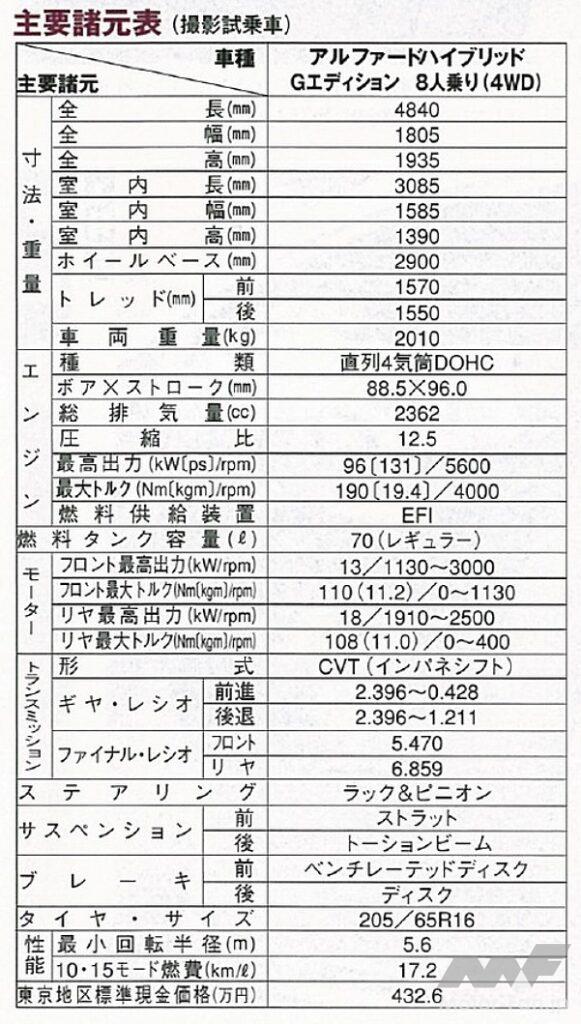 主要諸元表(撮影試乗車)
車種 アルファードハイブリッド
主要諸元 Gエディション 8人乗り(4WD)
寸法・重量
全長(mm) 4840
全幅(mm) 1805
全高(mm) 1935
室内長(mm) 3085
室内幅(mm) 1585
室内高(mm) 1390
ホイールベース(mm) 2900
トレッド(mm) 前 1570
後 1550
車両重量(kg) 2010
エンジン
種類 直列4気筒DOHC
ボア×ストローク(mm) 88.5×96.0
総排気量(cc) 2362
圧縮比 12.5
最高出力(kW[ps]/rpm) 96[131]/5600
最大トルク(Nm[kgm]/rpm) 190[19.4]/4000
燃料供給装置 EFI
燃料タンク容量(ℓ) 70(レギュラー)
モーター
フロント最高出力(kW/rpm) 13/1130〜3000
フロント最大トルク(Nm[kgm]/rpm) 110(11.2)/0〜1130
リヤ最高出力(kW/rpm) 18/1910〜2500
リヤ最大トルク(Nm[kgm]/rpm) 108(11.0)/0〜400
トランスミッション
形式 CVT(インパネシフト)
ギヤ・レシオ 前進 2.396〜0.428
後退 2.396〜1.211
ファイナル・レシオ フロント 5.470
リヤ 6.859
ステアリング ラック&ピニオン
サスペンション 前 ストラット
後 トーションビーム
ブレーキ 前 ベンチレーテッドディスク
後 ディスク
タイヤ・サイズ 205/65R16
性能
最小回転半径(m) 5.6
10・15モード燃費(km/ℓ) 17.2
東京地区標準現金価格(万円) 432.6